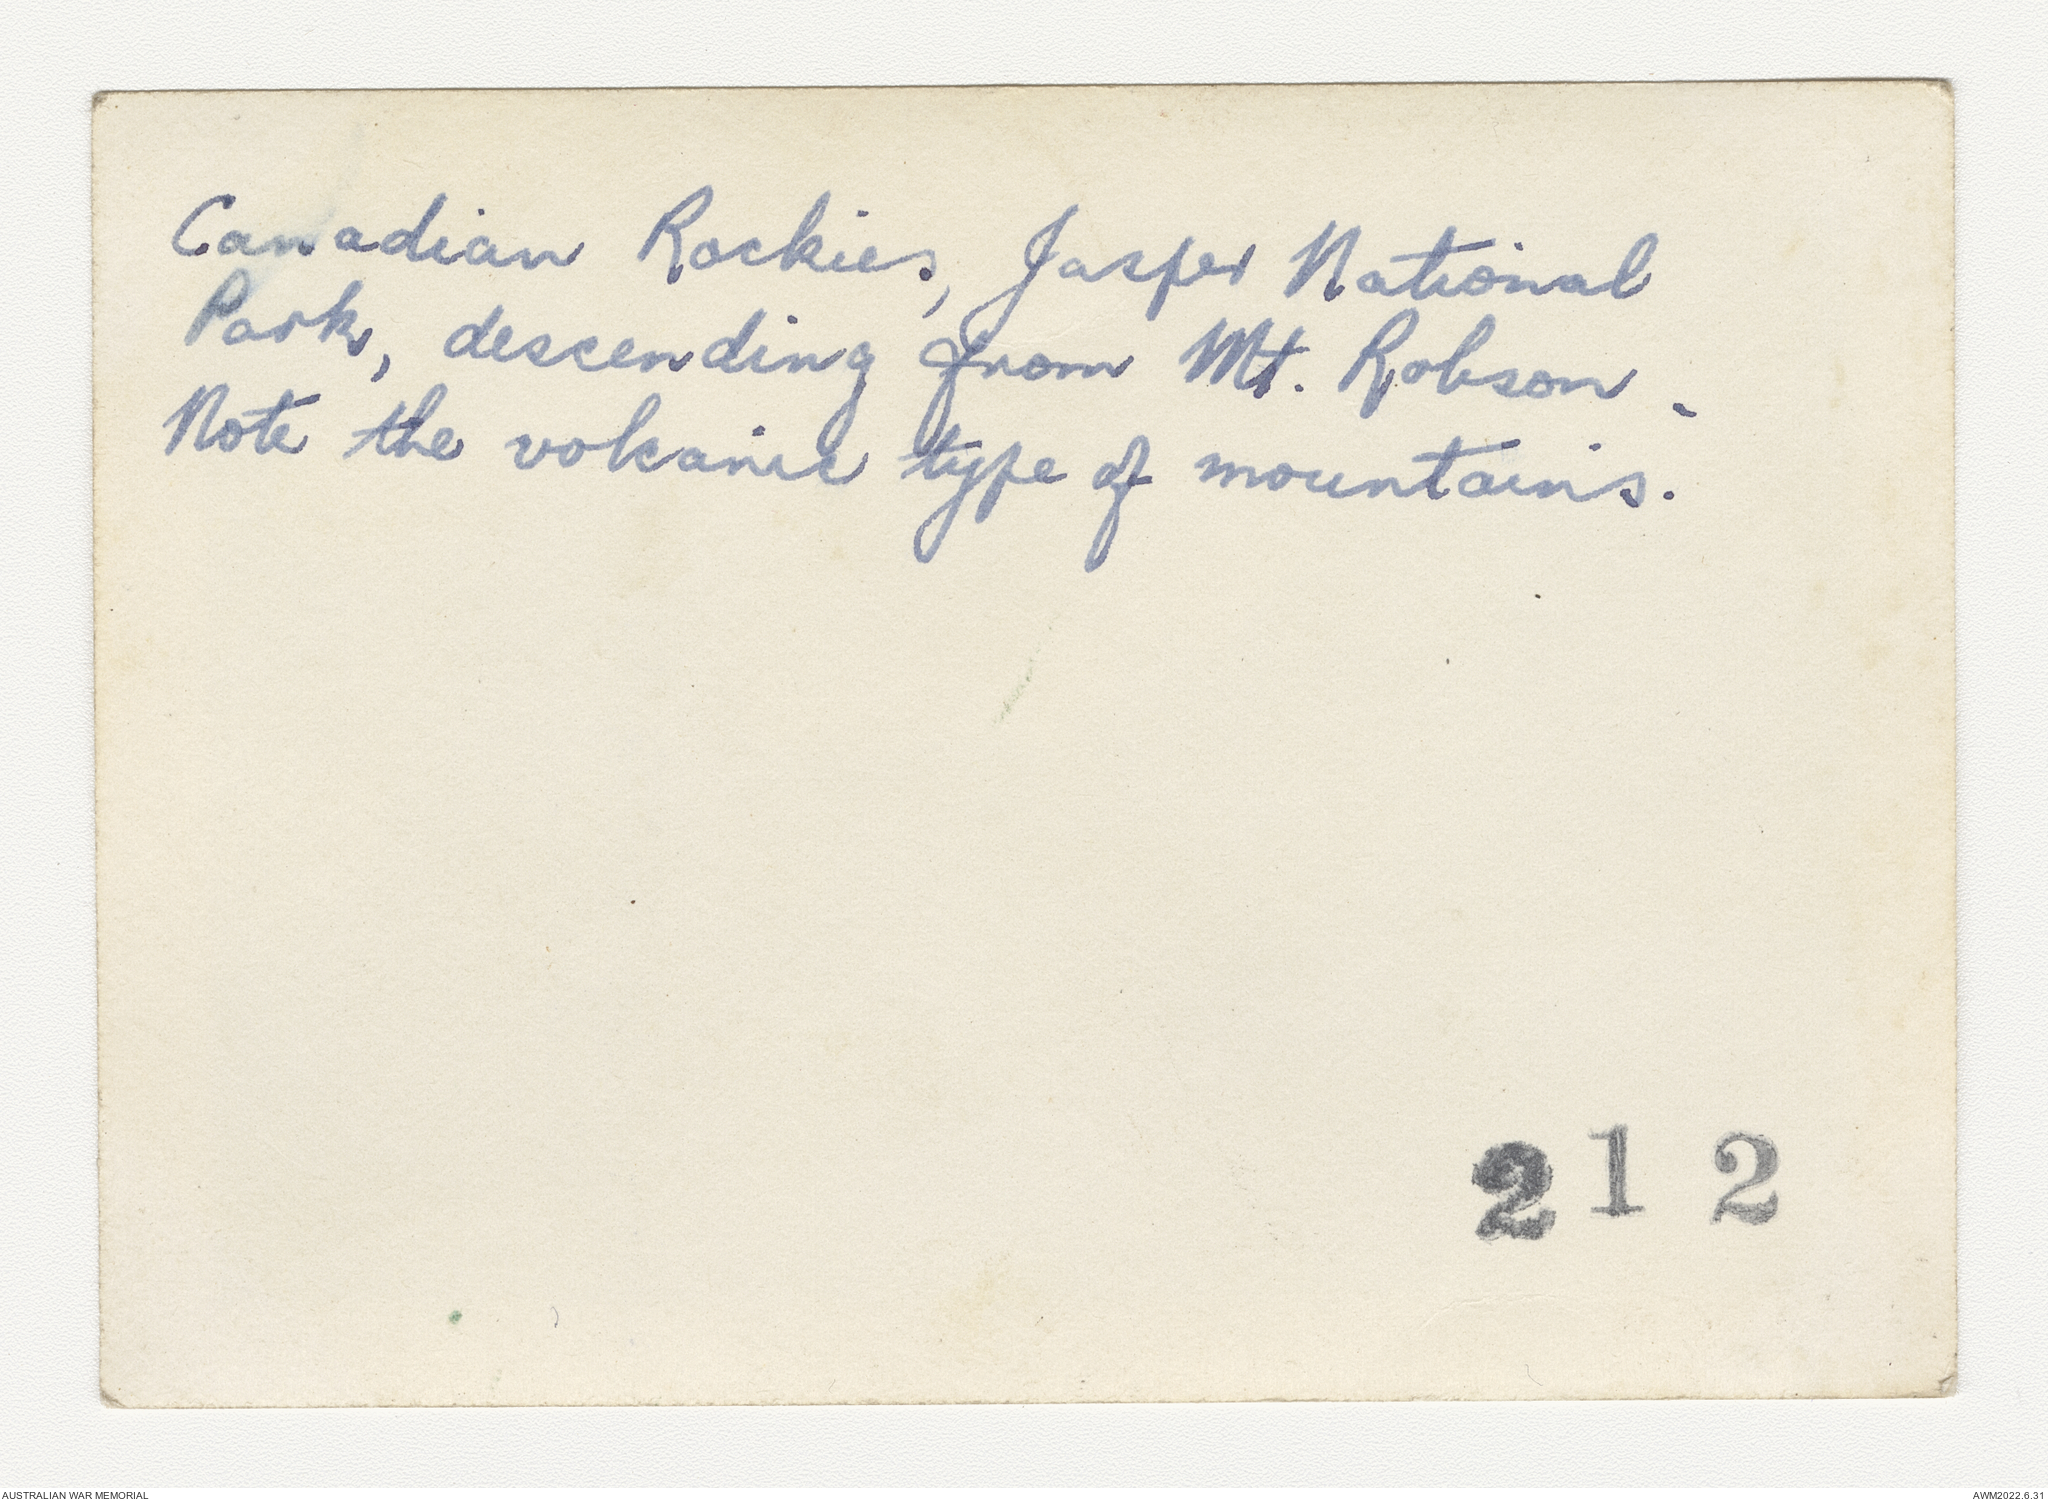 Canadian Rockies, Jasper National
Park, descending from Mt. Robson.
Note the volcanic type of mountains.
212
AUSTRALIAN WAR MEMORIAL
AWM2022.6.31